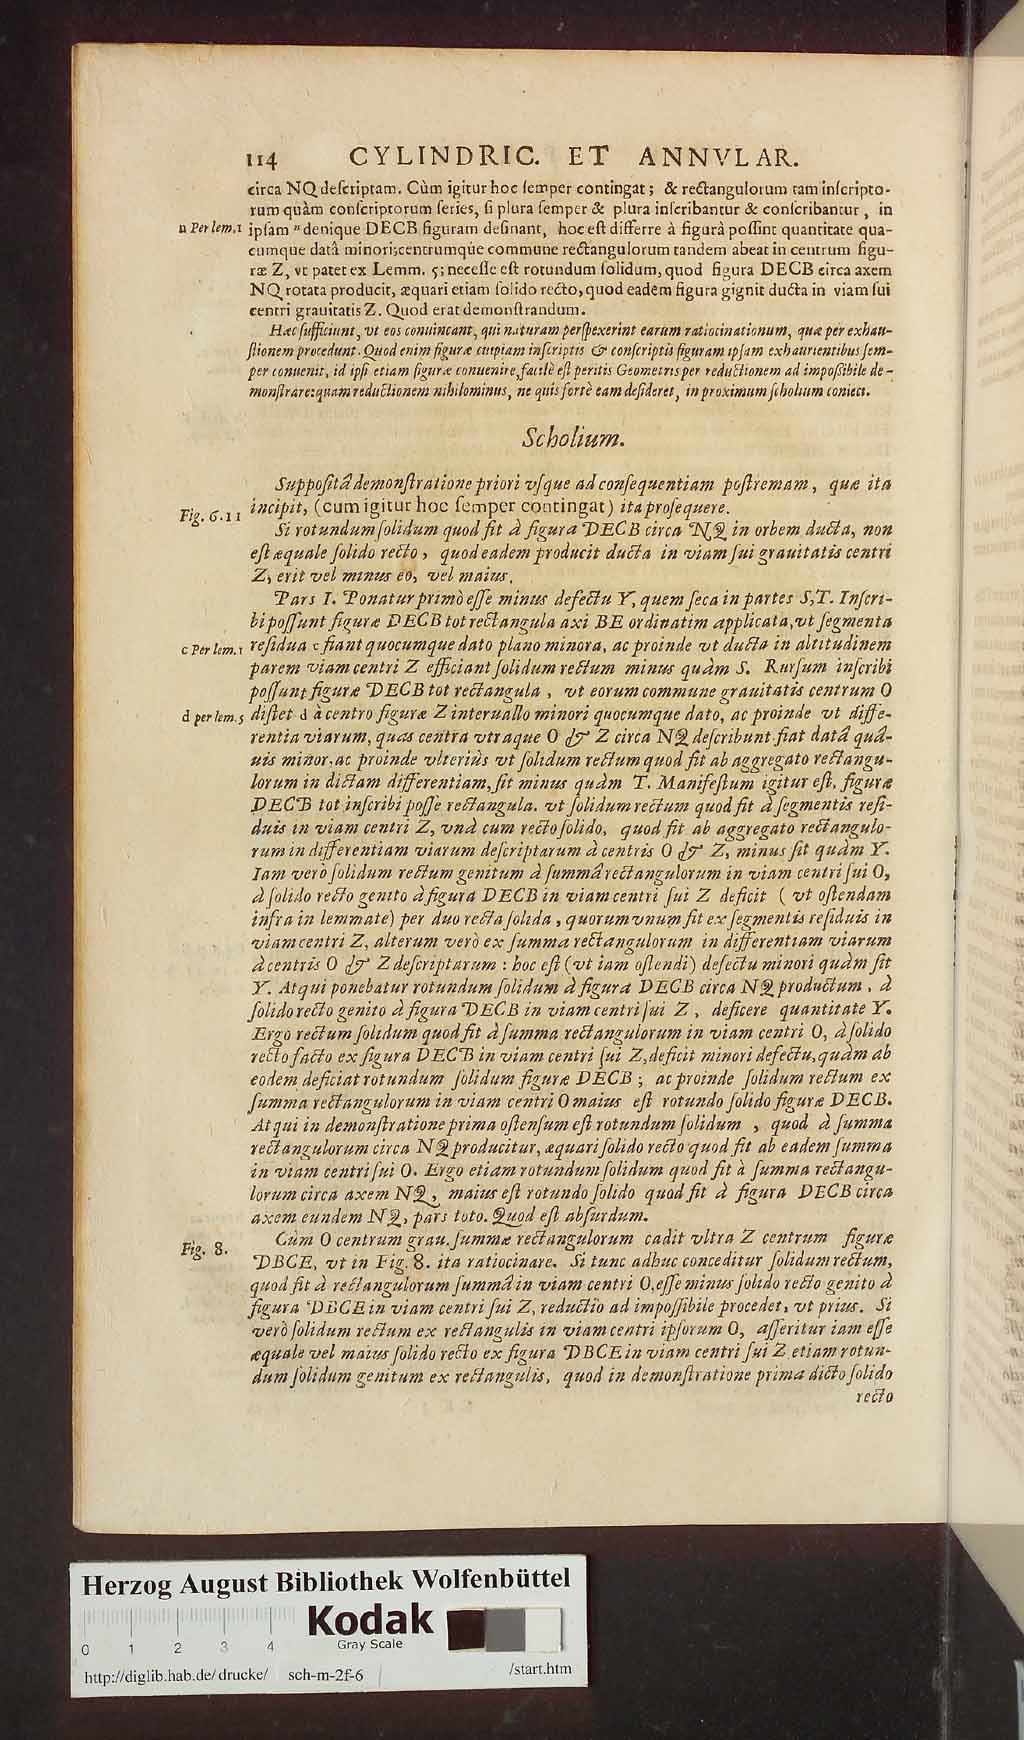 114 CYLINDRIC. ET ANNVLAR.
circa NQ deſcriptam. Cùm igitur hoc ſemper contingat; & rectangulorum tam inſcripto-
rum quàm conſcriptorum ſeries, ſi plura ſemper & plura inſcribantur & conſcribantur, in
n Per lem. 1 ipſam n denique DECB figuram deſinant, hoc eſt differre à figurâ poſſint quantitate qua-
cumque datâ minori; centrumque commune rectangulorum tandem abeat in centrum figu-
ræ Z, vt patet ex Lemm. 5; neceſſe eſt rotundum ſolidum, quod figura DECB circa axem
NQ rotata producit, æquari etiam ſolido recto, quod eadem figura gignit ducta in viam ſui
centri grauitatis Z. Quod erat demonſtrandum.
Hæc ſufficiunt, vt eos conuincant, qui naturam perſpexerint earum ratiocinationum, quæ per exhau-
ſtionem procedunt. Quod enim figuræ cuipiam inſcriptis & conſcriptis figuram ipſam exhaurientibus ſem-
per conuenit, id ipſi etiam figuræ conuenire, facilè eſt peritis Geometris per reductionem ad impoßibile de-
monſtrare: quam reductionem nihilominus, ne quis fortè eam deſideret, in proximum ſcholium conieci.
Scholium.
Suppoſitâ demonſtratione priori vſque ad conſequentiam poſtremam, quæ ita
incipit, (cum igitur hoc ſemper contingat) ita proſequere.
Fig. 6. 11
Si rotundum ſolidum quod fit à figura DECB circa NQ in orbem ducta, non
eſt æquale ſolido recto, quod eadem producit ducta in viam ſui grauitatis centri
Z, erit vel minus eo, vel maius.
Pars I. Ponatur primò eſſe minus defectu Y, quem ſeca in partes S, T. Inſcri-
bi poſſunt figuræ DECB tot rectangula axi BE ordinatim applicata, vt ſegmenta
c Per lem. 1 reſidua c fiant quocumque dato plano minora, ac proinde vt ducta in altitudinem
parem viam centri Z efficiant ſolidum rectum minus quàm S. Rurſum inſcribi
poſſunt figuræ DECB tot rectangula, vt eorum commune grauitatis centrum O
d per lem. 5 diſtet d à centro figuræ Z interuallo minori quocumque dato, ac proinde vt diffe-
rentia viarum, quas centra vtraque O & Z circa NQ deſcribunt fiat datâ quâ-
uis minor, ac proinde vlteriùs vt ſolidum rectum quod fit ab aggregato rectangu-
lorum in dictam differentiam, ſit minus quàm T. Manifeſtum igitur eſt, figuræ
DECB tot inſcribi poſſe rectangula. vt ſolidum rectum quod fit à ſegmentis reſi-
duis in viam centri Z, vnà cum recto ſolido, quod fit ab aggregato rectangulo-
rum in differentiam viarum deſcriptarum à centris O & Z, minus ſit quàm Y.
Iam verò ſolidum rectum genitum à ſummâ rectangulorum in viam centri ſui O,
à ſolido recto genito à figura DECB in viam centri ſui Z deficit ( vt oſtendam
infra in lemmate) per duo recta ſolida, quorum vnum fit ex ſegmentis reſiduis in
viam centri Z, alterum verò ex ſumma rectangulorum in differentiam viarum
à centris O & Z deſcriptarum : hoc eſt (vt iam oſtendi) defectu minori quàm ſit
Y. Atqui ponebatur rotundum ſolidum à figura DECB circa NQ productum, à
ſolido recto genito à figura DECB in viam centri ſui Z, deficere quantitate Y.
Ergo rectum ſolidum quod fit à ſumma rectangulorum in viam centri O, à ſolido
recto facto ex figura DECB in viam centri ſui Z, deficit minori defectu, quàm ab
eodem deficiat rotundum ſolidum figuræ DECB; ac proinde ſolidum rectum ex
ſumma rectangulorum in viam centri O maius eſt rotundo ſolido figuræ DECB.
Atqui in demonſtratione prima oſtenſum eſt rotundum ſolidum, quod à ſumma
rectangulorum circa NQ producitur, æquari ſolido recto quod fit ab eadem ſumma
in viam centri ſui O. Ergo etiam rotundum ſolidum quod fit à ſumma rectangu-
lorum circa axem NQ, maius eſt rotundo ſolido quod fit à figura DECB circa
axem eundem NQ, pars toto. Quod eſt abſurdum.
Fig. 8. Cùm O centrum grau. ſummæ rectangulorum cadit vltra Z centrum figuræ
DBCE, vt in Fig. 8. ita ratiocinare. Si tunc adhuc conceditur ſolidum rectum,
quod fit à rectangulorum ſummâ in viam centri O, eſſe minus ſolido recto genito à
figura DBCE in viam centri ſui Z, reductio ad impoſſibile procedet, vt prius. Si
verò ſolidum rectum ex rectangulis in viam centri ipſorum O, aſſeritur iam eſſe
æquale vel maius ſolido recto ex figura DBCE in viam centri ſui Z etiam rotun-
dum ſolidum genitum ex rectangulis, quod in demonſtratione prima dicto ſolido
recto
Herzog August Bibliothek Wolfenbüttel
Kodak
Gray Scale
0 1 2 3 4
http://diglib.hab.de/drucke/ sch-m-2f-6 /start.htm